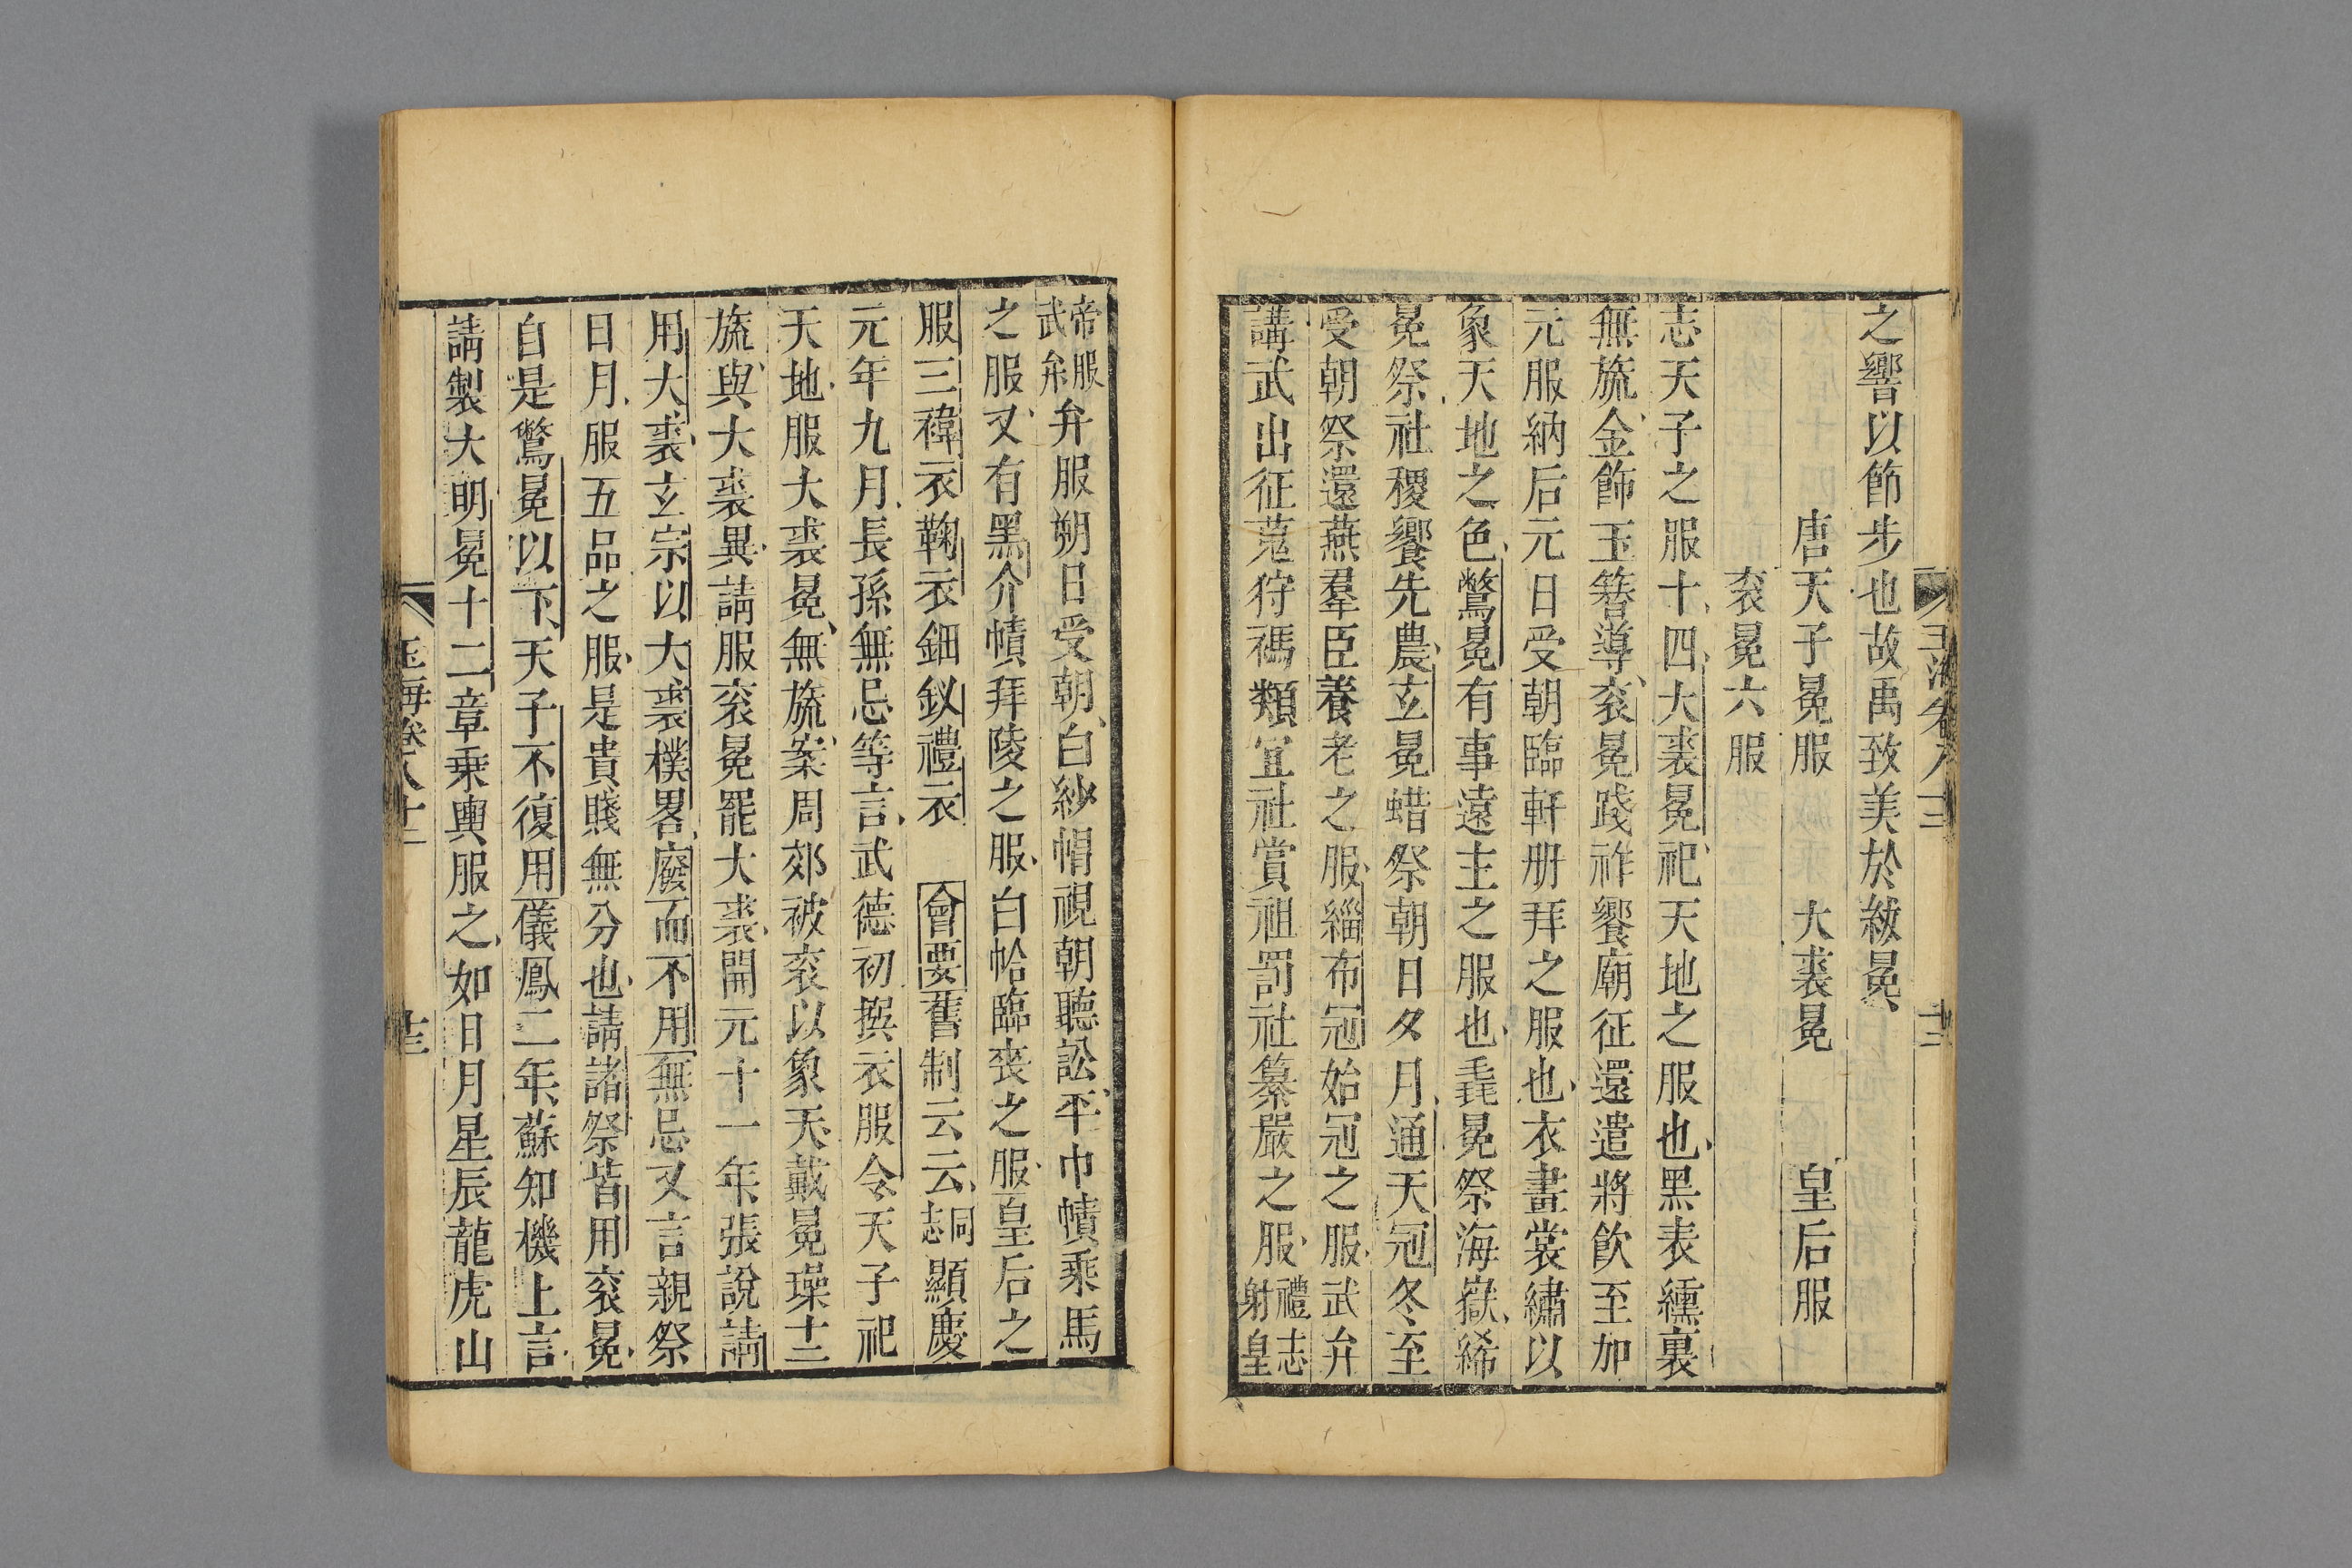 之響以節步也故禹致美於紱冕
唐天子冕服 大裘冕 皇后服
衮冕六服
志天子之服十四大裘冕祀天地之服也黑表纁裏
無旒金飾玉簪導衮冕踐祚饗廟征還遣將飲至加
元服納后元日受朝臨軒册拜之服也衣畫裳繡以
象天地之色鷩冕有事遠主之服也毳冕祭海嶽絺
冕祭社稷饗先農玄冕蜡祭朝日夕月通天冠冬至
受朝祭還燕羣臣養老之服緇布冠始冠之服武弁
講武出征蒐狩禡類宜社賞祖罰社纂嚴之服禮志射皇
帝服武弁弁服朔日受朝白紗帽視朝聽訟平巾幘乘馬
之服又有黑介幘拜陵之服白帢臨喪之服皇后之
服三褘衣鞠衣鈿釵禮衣 會要舊制云云同志顯慶
元年九月長孫無忌等言武德初撰衣服令天子祀
天地服大裘冕無旒案周郊被衮以象天戴冕璪十二
旒與大裘異請服衮冕罷大裘開元十一年張說請
用大裘玄宗以大裘樸畧廢而不用無忌又言親祭
日月服五品之服是貴賤無分也請諸祭皆用衮冕
自是鷩冕以下天子不復用儀鳳二年蘇知機上言
請製大明冕十二章乗輿服之如日月星辰龍虎山
玉海卷八十二
十三